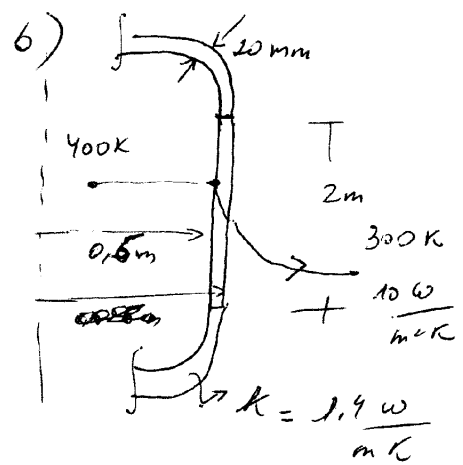 6)
20mm
400K
2m
300K
0,5m
10 W
m²K
K = 1,4 W
mK